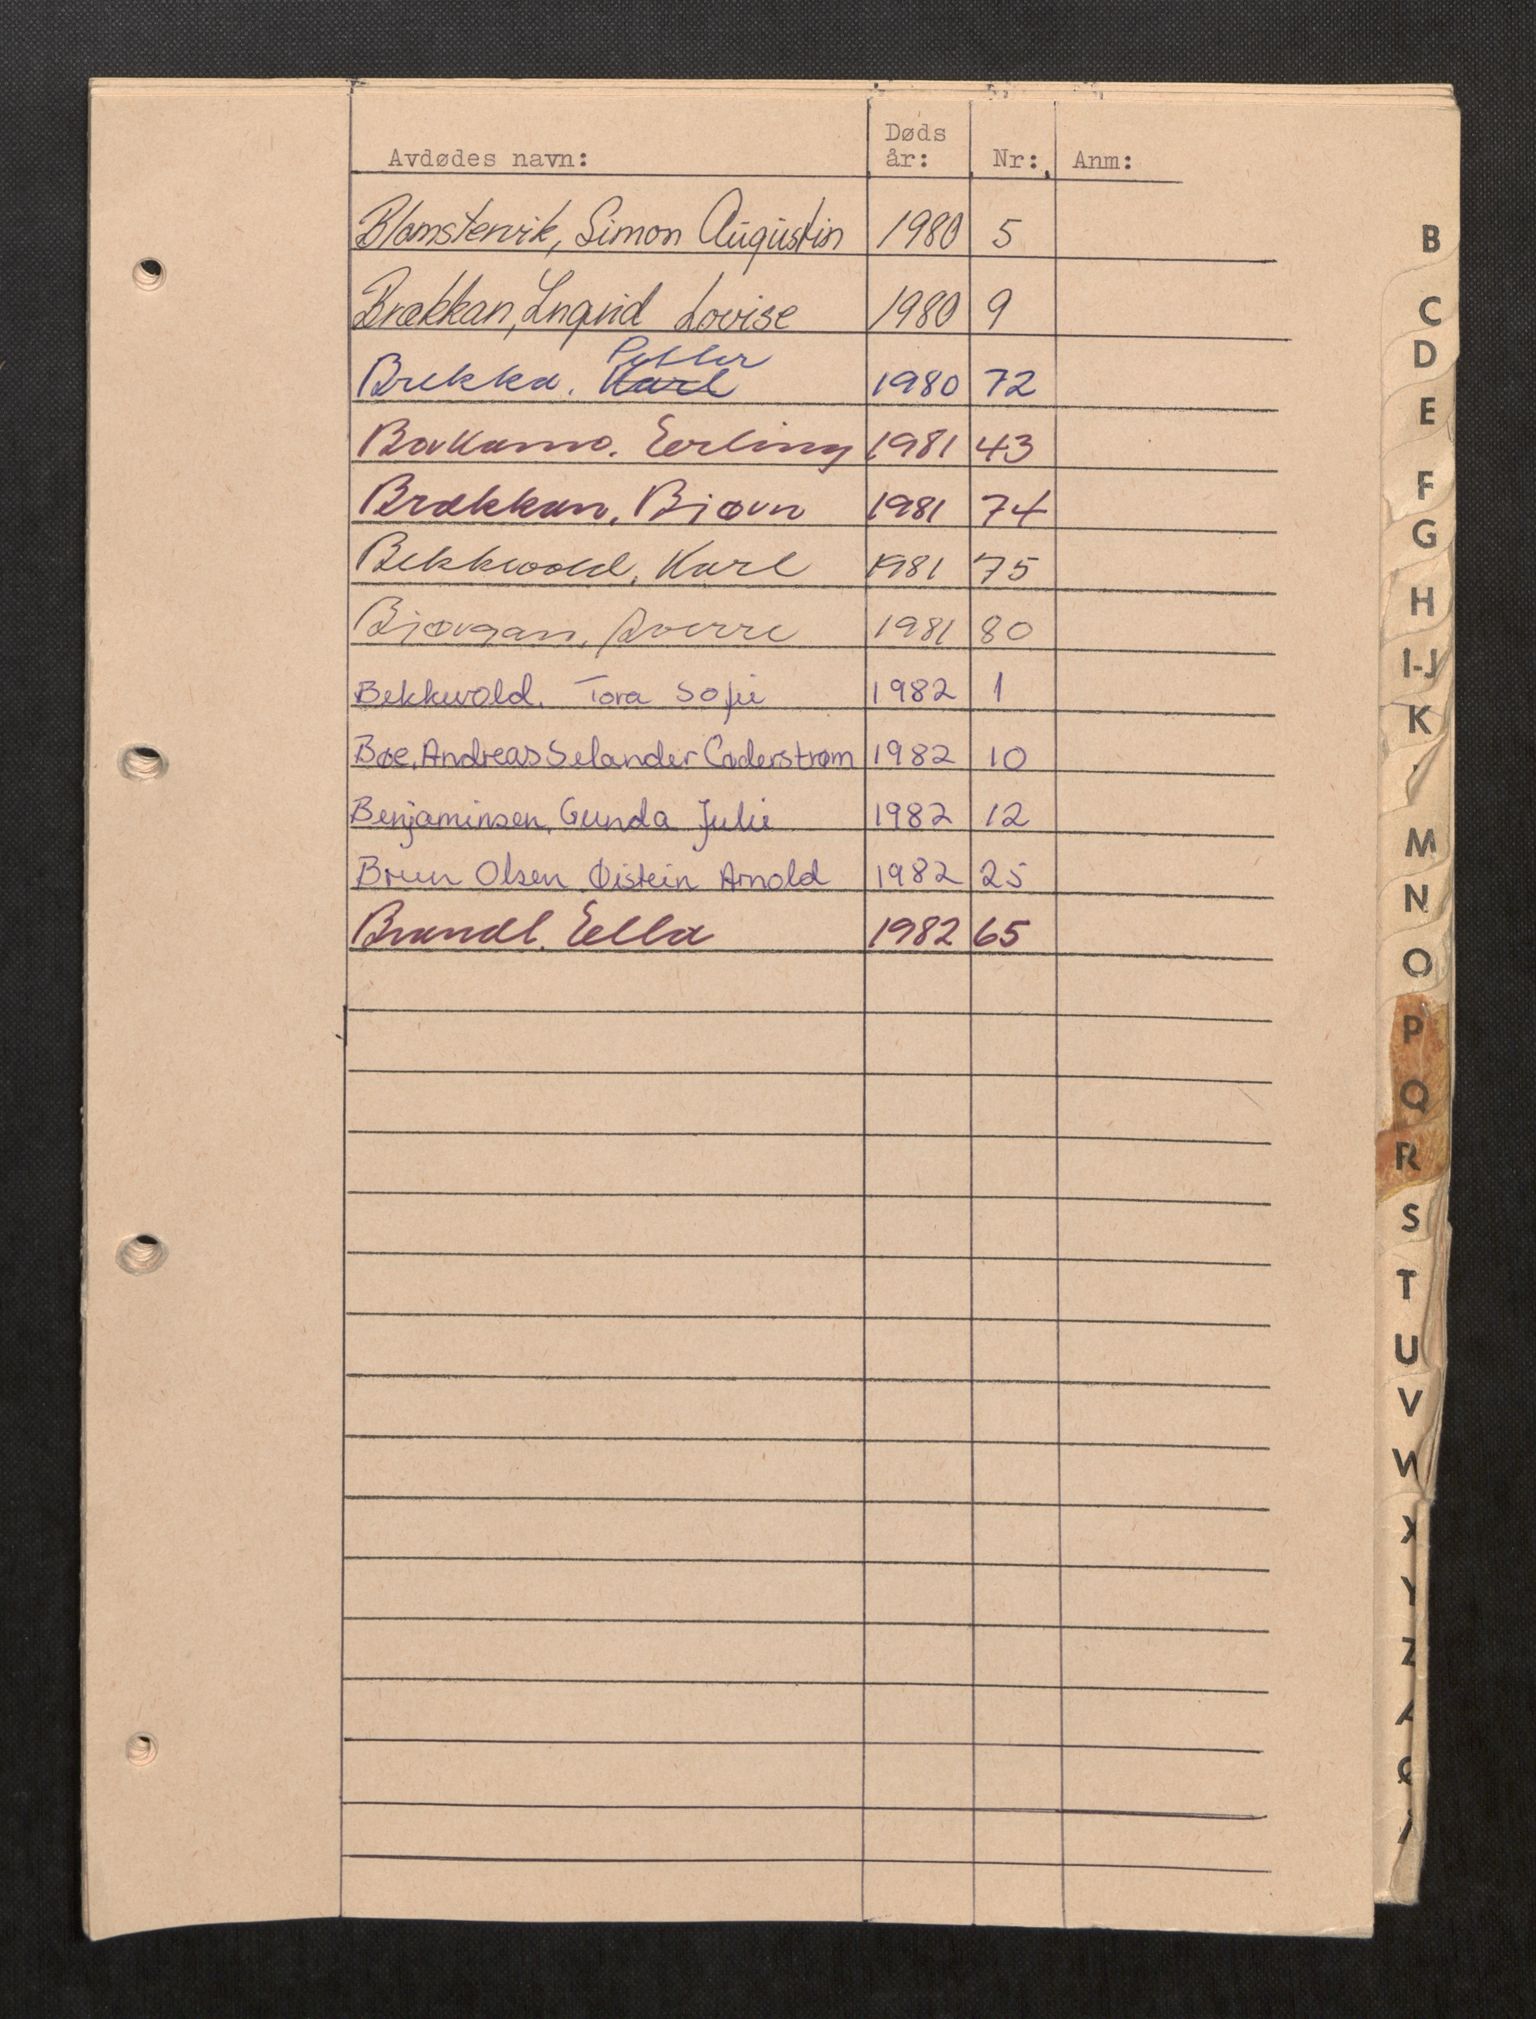 Avdødes navn: Døds år: Nr: Anm:
Blomstervik, Simon Augustin 1980 5
Brækkan, Ingrid Lovise 1980 9
Petter
Brekka. Karl 1980 72
Erling 1981 43
Brækkan, Bjørn 1981 74
Bekkvold, Karl 1981 75
Bjørgan, Sverre 1981 80
Bekkvold. Tora Sofie 1982 1
Bøe, Andreas Selander Cæderstrøm 1982 10
Benjaminsen, Gunda Julie 1982 12
Brun Olsen Øistein Arnold 1982 25
Brandl. Ella 1982 65
B
C
D
E
F
G
H
I-J
K
M
N
O
P
Q
R
S
T
U
V
W
X
Y
Z